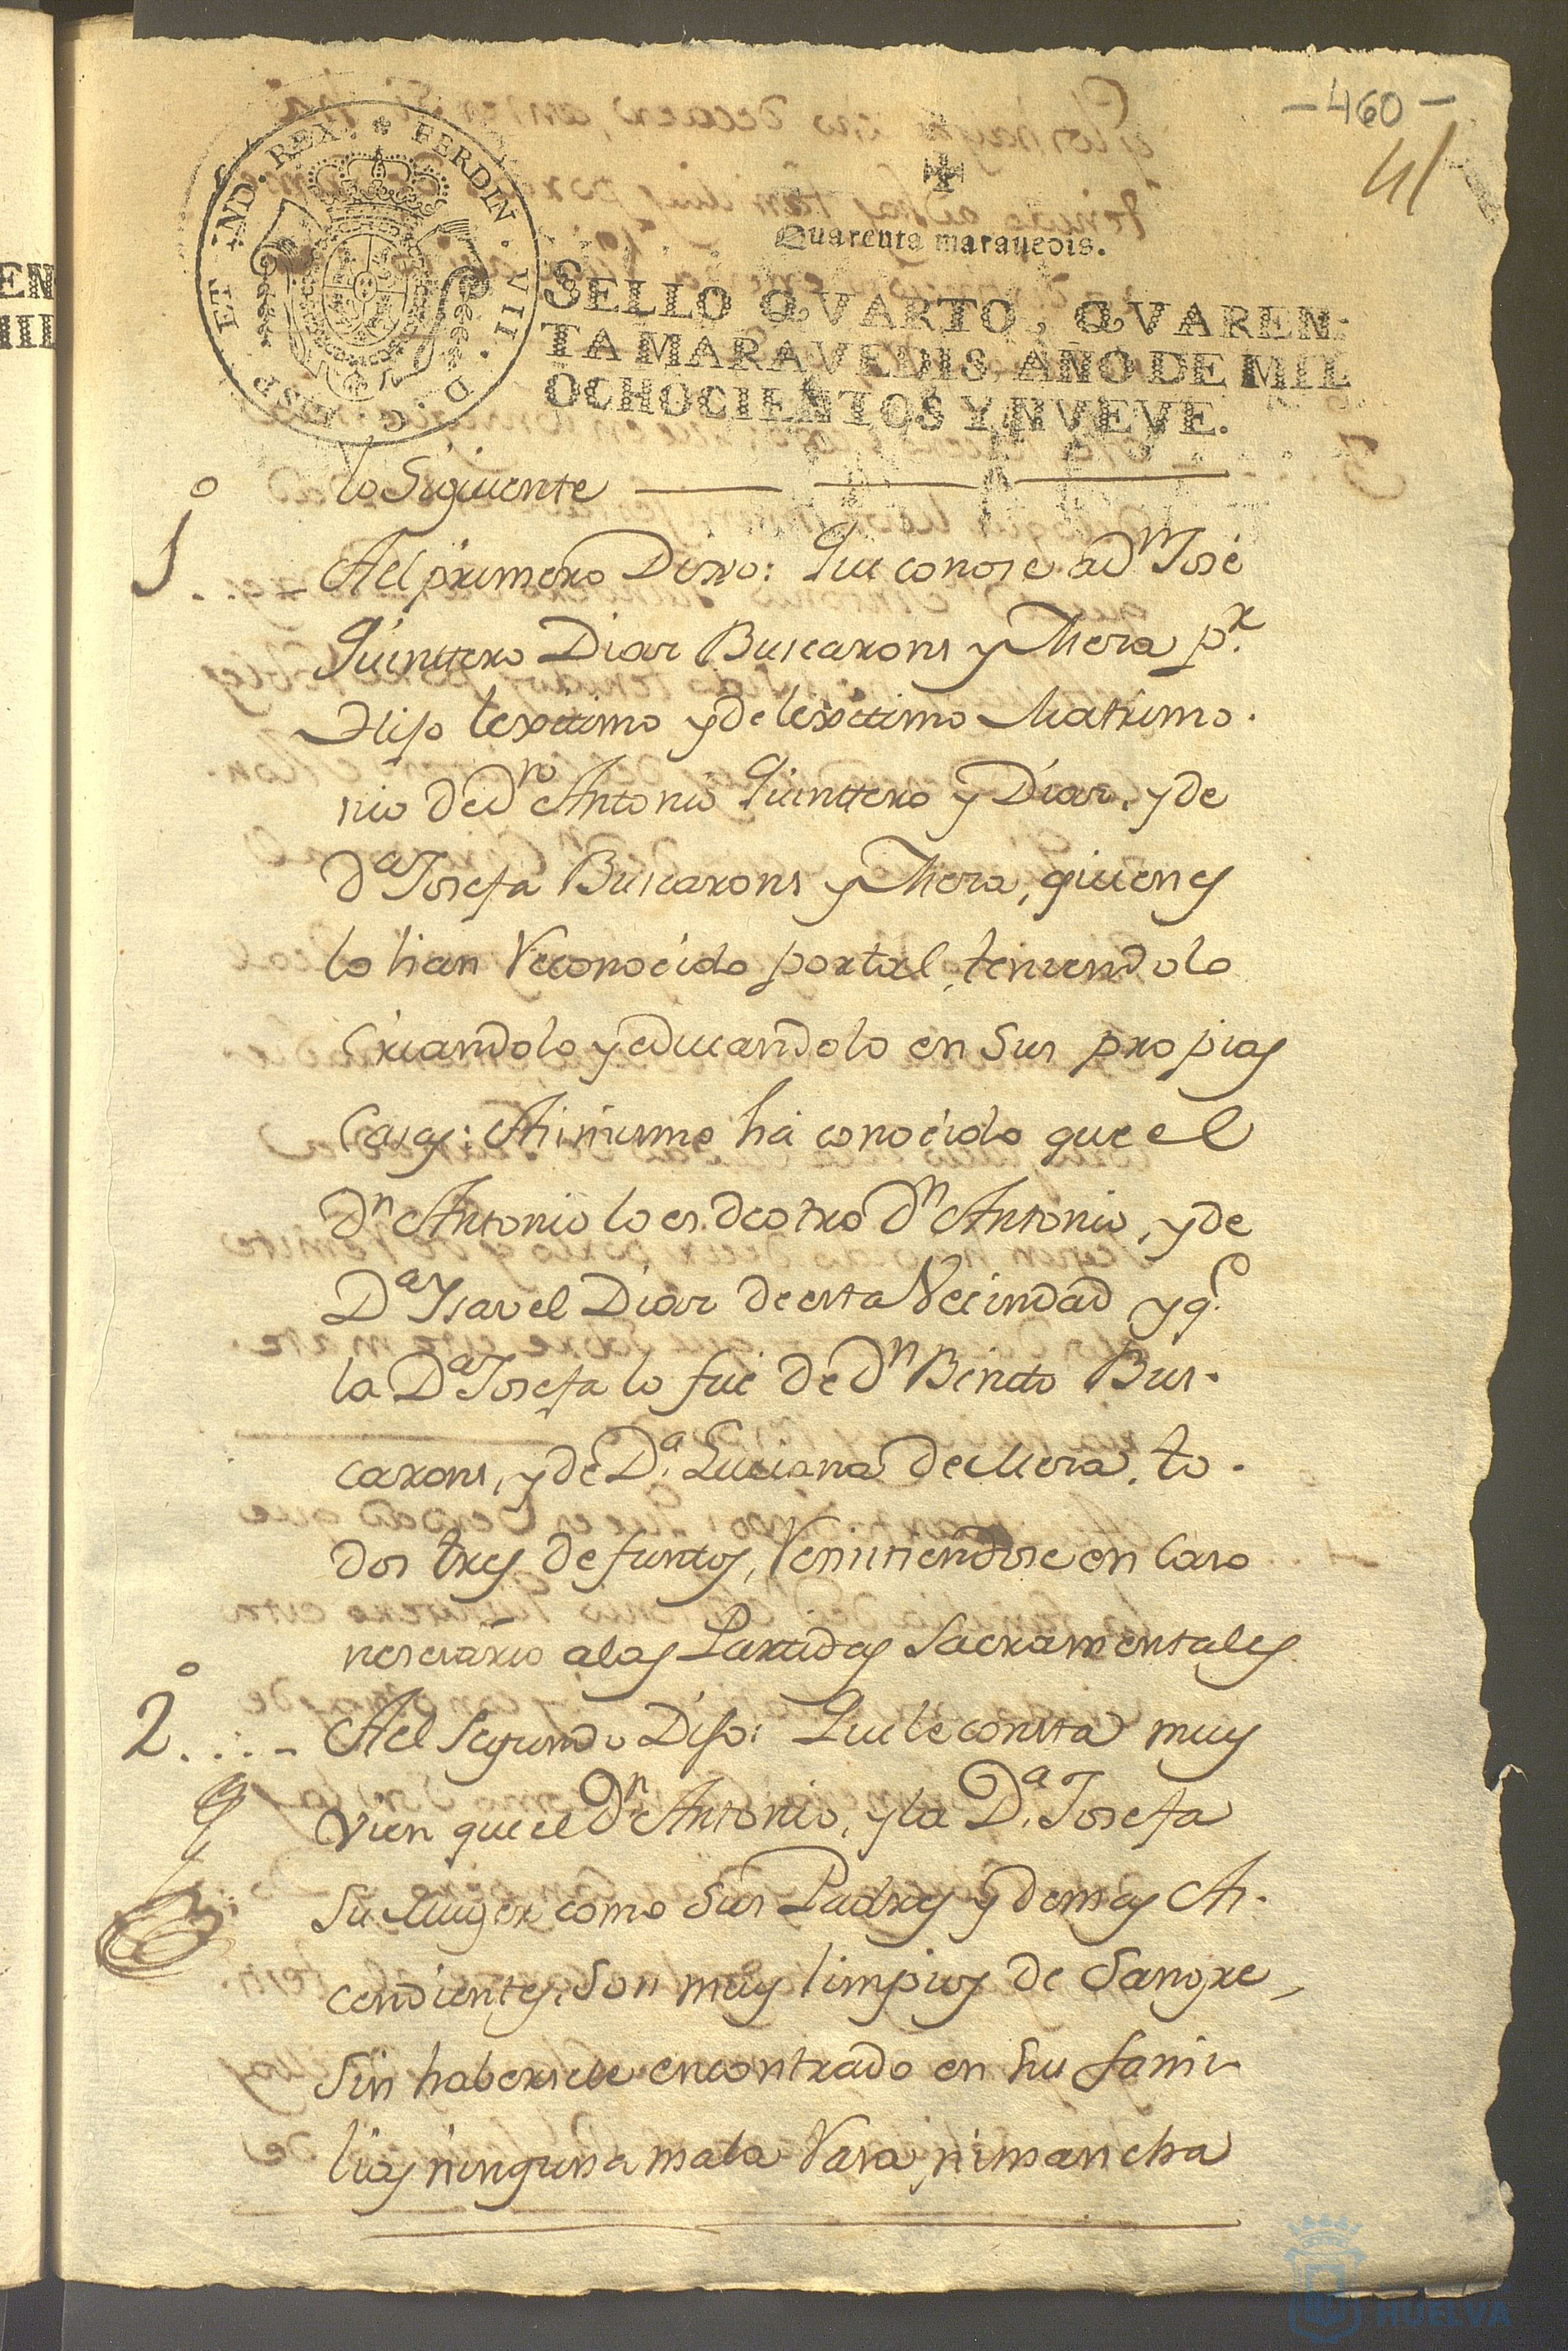 -460-
41
FERDIN · VII · D · G · HISP · ET · IND · REX ·
Quarenta maravedis.
SELLO QVARTO, QVAREN-
TA MARAVEDIS, AÑO DE MIL
OCHOCIENTOS Y NVEVE.
lo Siguiente
1º... Al primero Dixo: Que conose a Dn José
Quinttero Diaz Buscarons y Mora pr.
Hijo lexitimo y de lexitimo Matrimo-
nio de Dn Antonio Quinttero y Diaz, y de
Da Josefa Buscarons y Mora, quienes
lo han Reconocido por tal, teniendolo
Criandolo y educandolo en sus propias
Casas: Asimismo ha conocido que el
Dn Antonio lo es de otro Dn Antonio, y de
Da Isavel Diaz de esta Vecindad y qe.
la Da Josefa lo fue de Dn Benito Bus-
carons, y de Da. Luciana de Mora, to-
dos tres defuntos, Remitiendose en Caso
nesesario a las Partidas Sacramentales
2º... Al Segundo Dijo: Que le consta muy
Vien que el Dn Antonio, y la Da. Josefa
Su Muger como sus Padres y demas As-
cendientes, Son muy limpios de Sangre,
Sin habersele encontrado en su fami-
lias ninguna mala Rasa, ni mancha
HUELVA